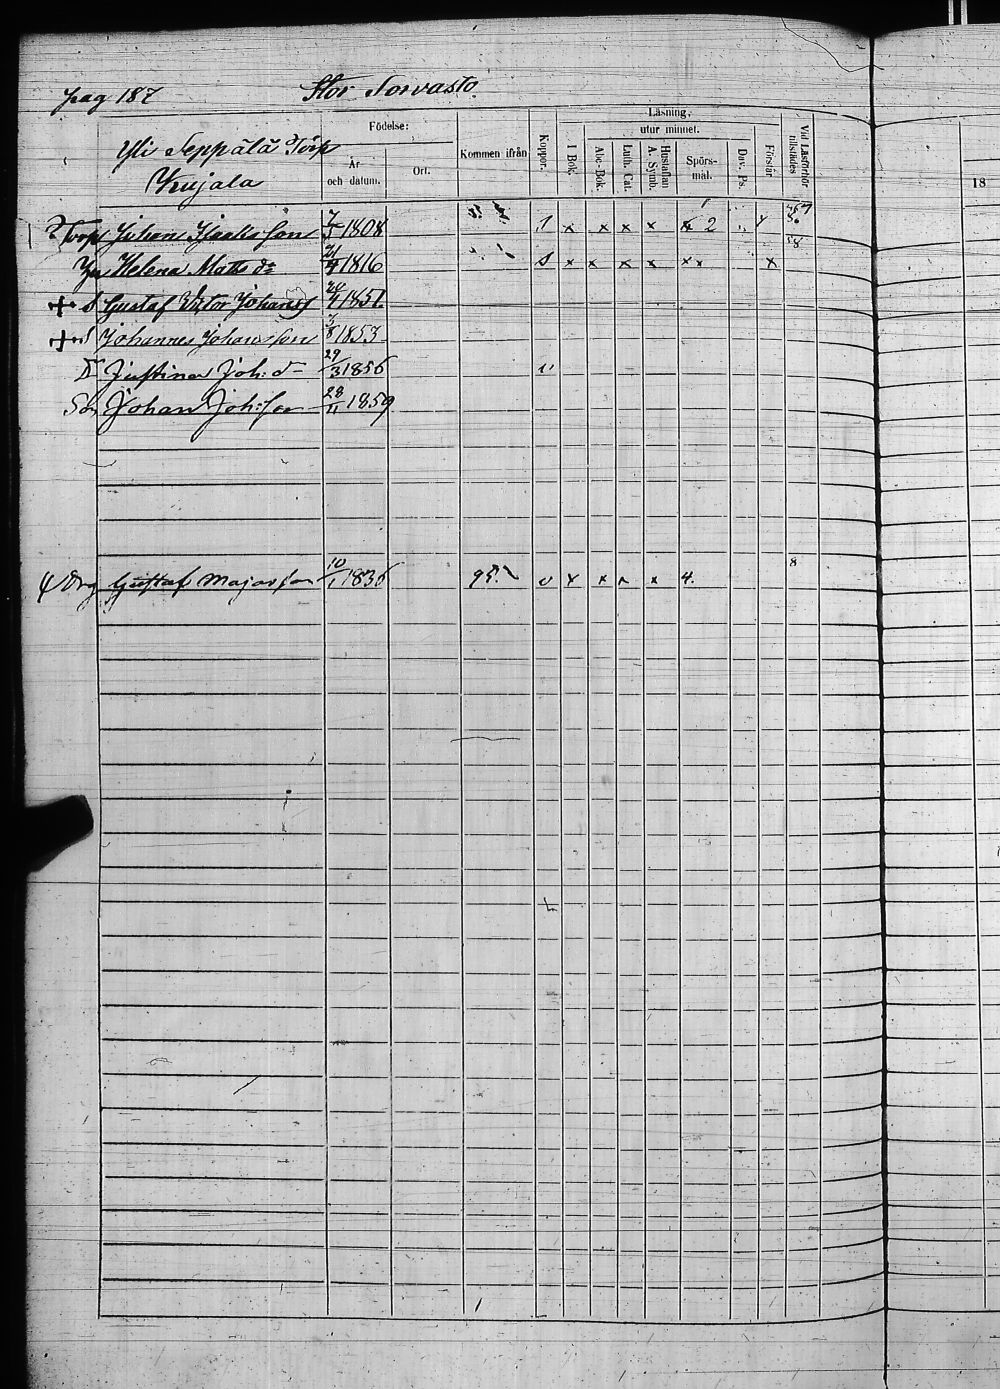 pag 187 Stor Torvasto.
Yli Seppälä Torp
Kujala
Födelse:
År och datum.
Ort.
Kommen ifrån
Koppor.
Läsning.
I Bok.
utur minnet.
Abc-Bok.
Luth. Cat.
Hustaflan A. Symb.
Spörs-mål.
Dav. Ps.
Förstår
Vid Läsförhör tillstädes
18
Torp Johan Isaksson 7/5 1808 x x x x 2
Helena Matsd:r 21/4 1816 s x x x x x x x
+ S Gustaf Victor Johanss 24/4 1851
+ S Johannes Johansson 3/8 1853
Dr Justina Joh:d 29/3 1856
Son Johan Joh:son 28/11 1859
Drg Gustaf Majasson 10/1 1836 95. v x x x x 4. 8